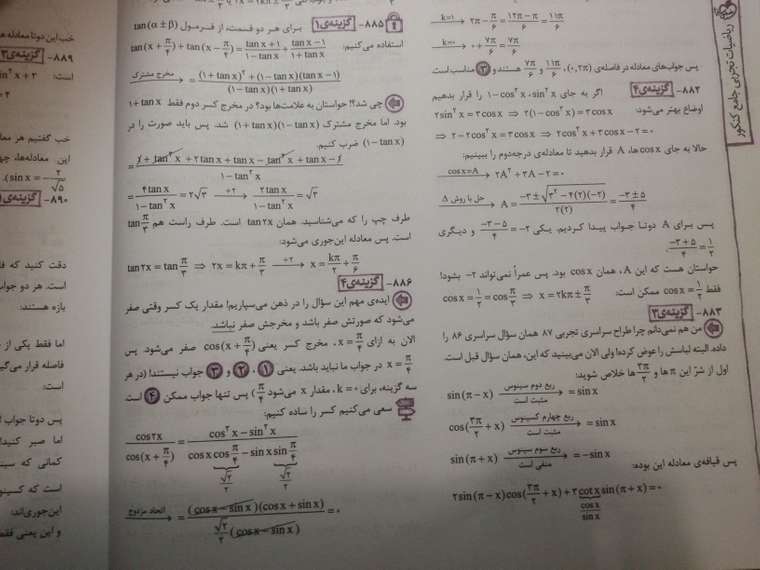 ریاضیات تجربی جامع کنکور
k=۱ → ۲π − π/۶ = (۱۲π − π)/۶ = ۱۱π/۶
k=۰ → ۰ + ۷π/۶ = ۷π/۶
پس جواب‌های معادله در فاصله‌ی (۰,۲π)، ۱۱π/۶ و ۷π/۶ هستند و ۳ مناسب است
۸۸۲- گزینه‌ی ۴ اگر به جای sin²x، ۱−cos²x را قرار بدهیم
اوضاع بهتر می‌شود: ۲sin²x = ۳cosx ⇒ ۲(۱−cos²x) = ۳cosx
⇒ ۲−۲cos²x = ۳cosx ⇒ ۲cos²x + ۳cosx − ۲ = ۰
حالا به جای cosx ها، A قرار بدهید تا معادله‌ی درجه‌دوم را ببینیم:
cosx=A → ۲A² + ۳A − ۲ = ۰
حل با روش Δ → A = (−۳ ± √(۳² − ۴(۲)(−۲)))/۲(۲) = (−۳ ± ۵)/۴
پس برای A دوتا جواب پیدا کردیم. یکی ۲− = (−۳−۵)/۴ و دیگری
(−۳+۵)/۴ = ۱/۲
حواستان هست که این A، همان cosx بود. پس عمراً نمی‌تواند ۲− بشود!
فقط cosx = ۱/۲ ممکن است: cosx = ۱/۲ = cos π/۳ ⇒ x = ۲kπ ± π/۳
۸۸۳- گزینه‌ی ۳
من هم نمی‌دانم چرا طراح سراسری تجربی ۸۷ همان سؤال سراسری ۸۶ را
داده. البته لباسش را عوض کرده! ولی الان می‌بینید که این، همان سؤال قبل است.
اول از شرّ این π ها و ۳π/۲ ها خلاص شوید:
sin(π−x) ربع دوم سینوس مثبت است → = sinx
cos(۳π/۲ + x) ربع چهارم کسینوس مثبت است → = sinx
sin(π+x) ربع سوم سینوس منفی است → = −sinx
پس قیافه‌ی معادله این بوده:
۲sin(π−x)cos(۳π/۲ + x) + ۳cotx sin(π+x) = ۰
cosx/sinx
۸۸۵- گزینه‌ی ۱ برای هر دو قسمت، از فرمول tan(α±β)
استفاده می‌کنیم: tan(x+π/۴) + tan(x−π/۴) = (tanx+۱)/(۱−tanx) + (tanx−۱)/(۱+tanx)
مخرج مشترک → = ((۱+tanx)² + (۱−tanx)(tanx−۱))/((۱−tanx)(۱+tanx))
چی شد؟! حواستان به علامت‌ها بود؟ در مخرج کسر دوم فقط ۱+tanx
بود. اما مخرج مشترک (۱−tanx)(۱+tanx) شد. پس باید صورت را در
(۱−tanx) ضرب کنیم.
= (۱ + tan²x + ۲tanx + tanx − tan²x + tanx − ۱)/(۱−tan²x)
= ۴tanx/(۱−tan²x) = ۲√۳ ÷۲ → ۲tanx/(۱−tan²x) = √۳
طرف چپ را که می‌شناسید. همان tan۲x است. طرف راست هم tan π/۳
است. پس معادله این‌جوری می‌شود:
tan۲x = tan π/۳ ⇒ ۲x = kπ + π/۳ ÷۲ → x = kπ/۲ + π/۶
۸۸۶- گزینه‌ی ۴
ایده‌ی مهم این سؤال را در ذهن می‌سپاریم! مقدار یک کسر وقتی صفر
می‌شود که صورتش صفر باشد و مخرجش صفر نباشد.
الان به ازای x = π/۴، مخرج کسر یعنی cos(x+π/۴) صفر می‌شود. پس
x = π/۴ در جواب ما نباید باشد. یعنی ۱، ۲ و ۳ جواب نیستند! (در هر
سه گزینه، برای k=۰، مقدار x می‌شود π/۴) پس تنها جواب ممکن ۴ است
سعی می‌کنیم کسر را ساده کنیم:
cos۲x/cos(x+π/۴) = (cos²x − sin²x)/(cosx cos π/۴ − sinx sin π/۴)
√۲/۲ √۲/۲
اتحاد مزدوج → = (cosx − sinx)(cosx + sinx)/(√۲/۲ (cosx − sinx)) = ۰
خب این دوتا معادله
۸۸۹- گزینه‌ی ۳
است:
خب گفتیم هر
این معادله‌ها،
(sinx = −۲/√۵)
۸۹۰- گزینه‌ی ۱
دقت کنید که
است. هر دو جواب
بازه هستند:
اما فقط یکی از
فاصله قرار
است:
پس دوتا جواب
اما صبر کنید!
کمانی که
است که
این‌جوری‌اند:
و این یعنی